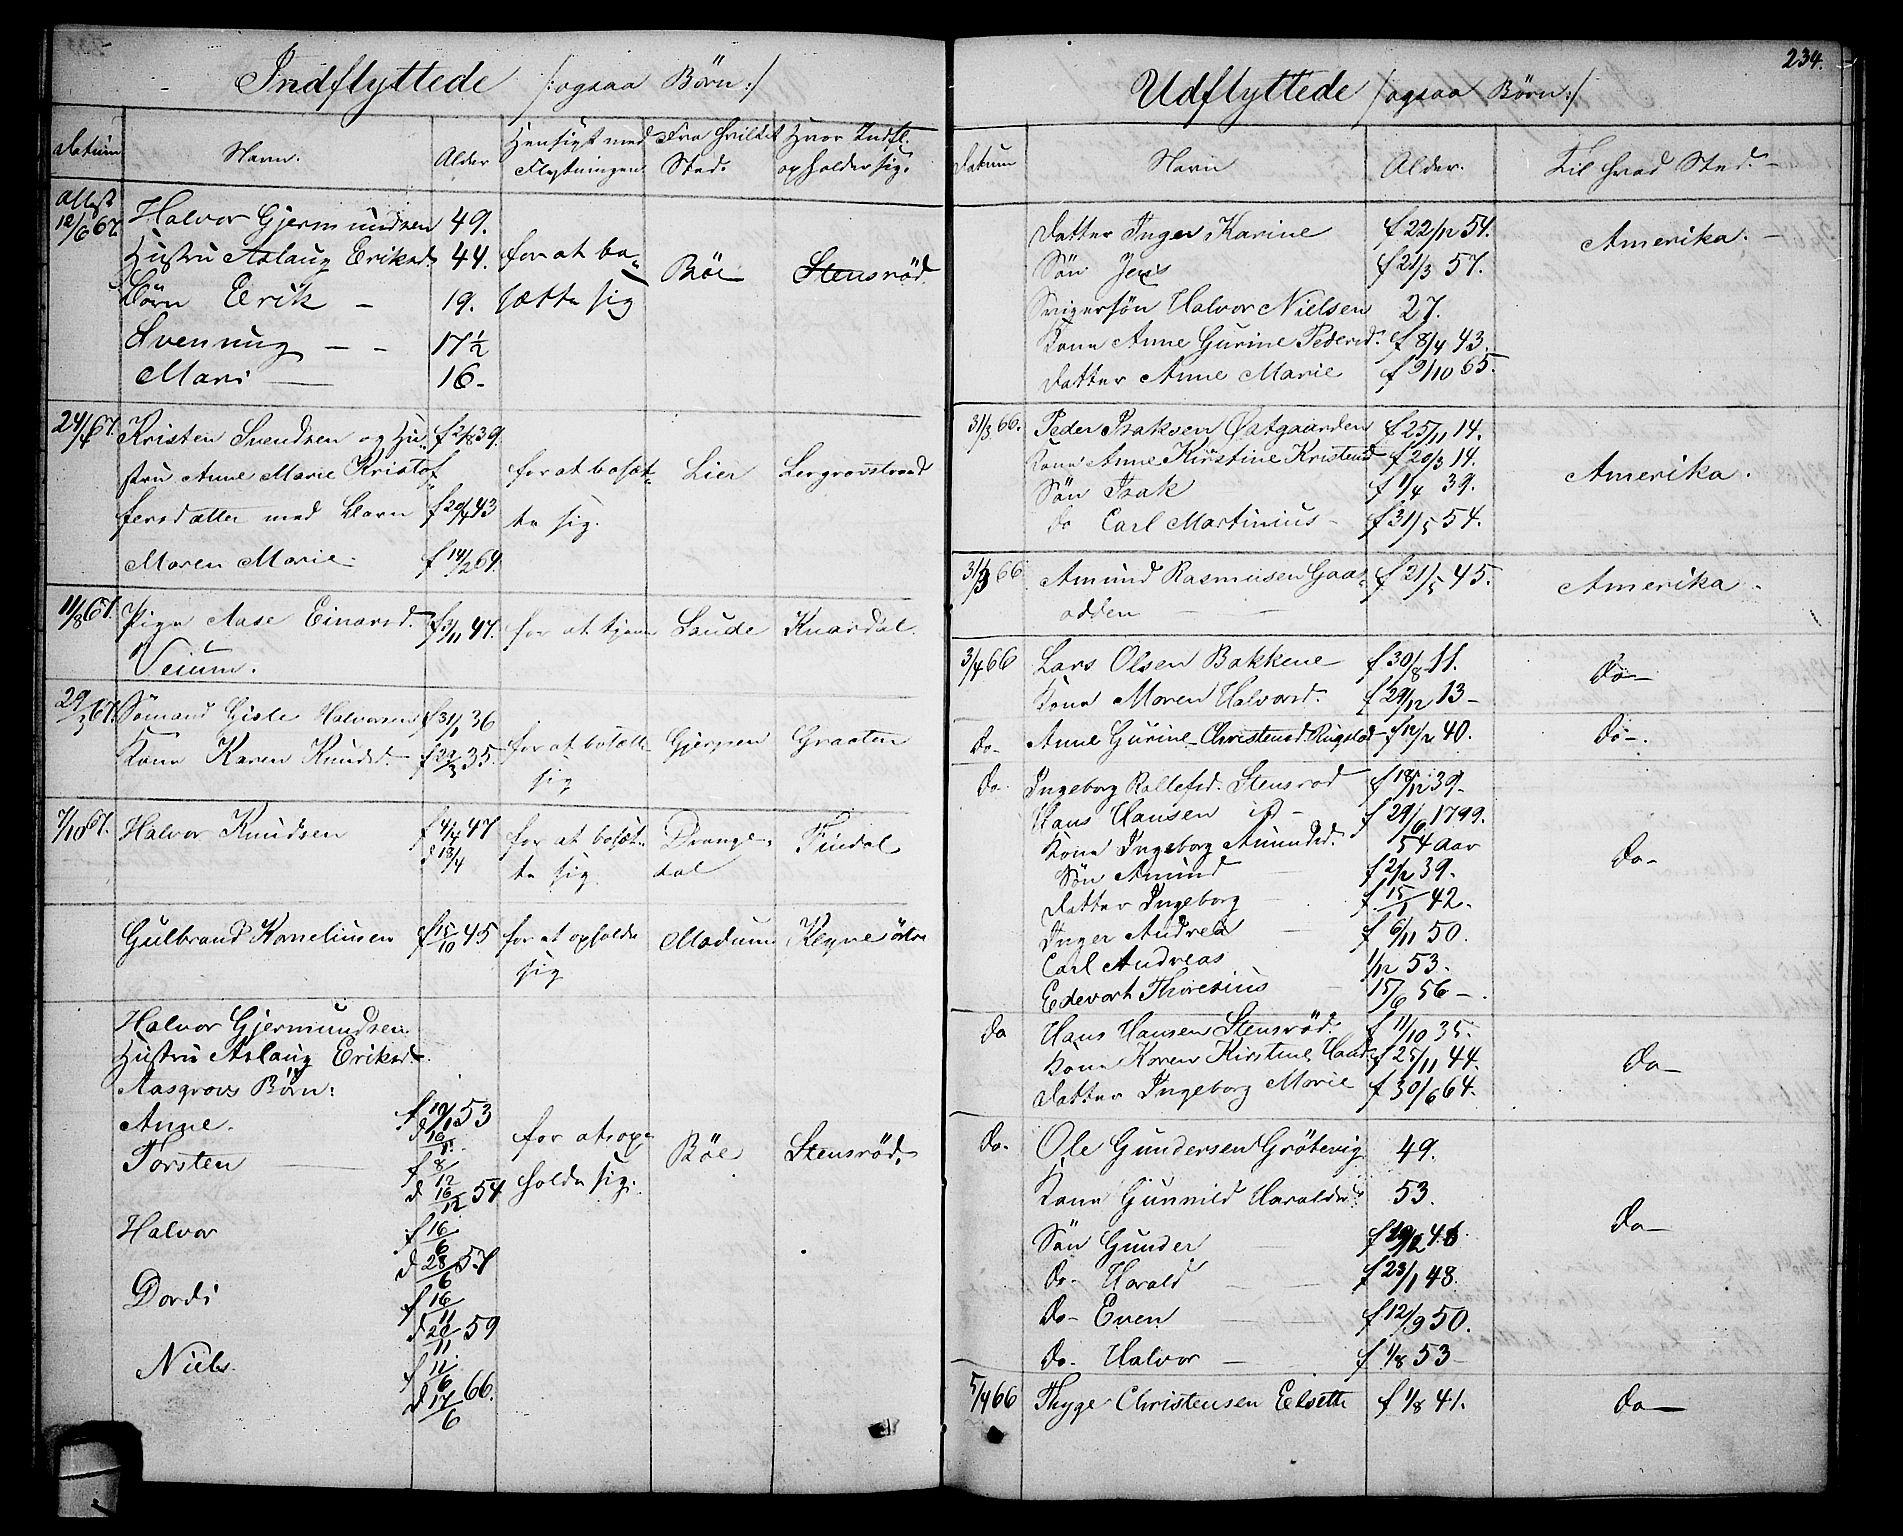 Indflyttede /:ogsaa Børn:/
Datum Navn. Alder Hensigt med Flytningen Fra hvilket Sted. Hvor Indfl. opholder sig.
Attest
12/6 67. Halvor Gjermundsen 49.
Hustru Aslaug Eriksd. 44. for at be- Böe Stensröd
Börn Erik – 19. sætte sig
Svenning – – 17½
Mari – 16–
24/ 67. Kristen Svendsen og Hu- f 2/8 39.
stru Anne Marie Kristof- for at besæt- Lier Lergravstrand
fersdatter med Barn f 20/4 43 te sig.
Maren Marie– f 14/2 64.
11/8 67. Pige Aase Einarsd. f 3/11 47. for at tjene Laude Knardal.
Veium.
29/ 67. Sömand Gisle Halvorsen f 31/1 36
Kone Karen Knudsd.– f 22/3 35. for at besætte Gjerpen Graaten
sig
7/10 67. Halvor Knudsen f 4/4 47 for at besæt- Drange- Findal
d 18/4 te sig. dal
Gulbrand Korneliusen f 15/10 45 for at opholde Modum Klyve östre
sig
Halvor Gjermundsen
Hustru Aslaug Eriksd.
Aasgrovs Börn:
Anne. f 10/1 53
d 16/
Torsten – f 8/12 for at op- Böe Stensröd.
d 16/12 54 holde sig.
Halvor f 16/6
d 28/6 57
Dordi f 16/11
d 20/11 59
Niels. f 11/6
d 17/6 66.
234.
Udflyttede /:ogsaa Börn:/
Datum Navn Alder. Til hvad Sted. –
Datter Inger Karine f 22/12 54. Amerika. –
Sön Jens f 21/3 57.
Svigersön Halvor Nielsen 27.
Kone Anne Gurine Pedersd. f 8/4 43.
Datter Anne Marie f 9/10 65.
31/3 66. Peder Isaksen Østgaarden f 25/11 14.
Kone Anne Kirstine Kristensd f 20/3 14. Amerika.
Sön Isak f 1/4 39.
do Carl Martinius – f 31/5 54.
31/3 66 Amund Rasmusen Gaas- f 21/5 45. Amerika –
odden – –
3/4 66 Lars Olsen Bakkene f 30/8 11. do–
Kone Maren Halvorsd. f 29/12 13–
do– Anne Gurine Christensd. Rugstad f 12/2 40. do–.
do– Ingeborg Rollefsd. Stensrod f 18/12 39–
Hans Hansen id – f 29/6 1799.
Kone Ingeborg Amundsd. 54 Aar do–
Sön Amund – f 2/2 39.
Datter Ingeborg – f 15/1 42.
Inger Andrea – f 6/11 50.
Carl Andreas 1/12 53.
Edevart Thoresius – 15/6 56–.
do Hans Hansen Stensröd. f 11/10 35.
Kone Karen Kirstine Hansd f 25/11 44. do–
Datter Ingeborg Marie f 30/6 64.
do– Ole Gundersen Grötevig 49.
Kone Gunnild Haraldsd. 53.
Sön Gunder – do–
do– Harald – f 23/1 48.
do– Even – f 12/9 50.
do– Halvor – f 1/8 53–
5/4 66 Thyge Christensen Elseth f 1/8 41. do–